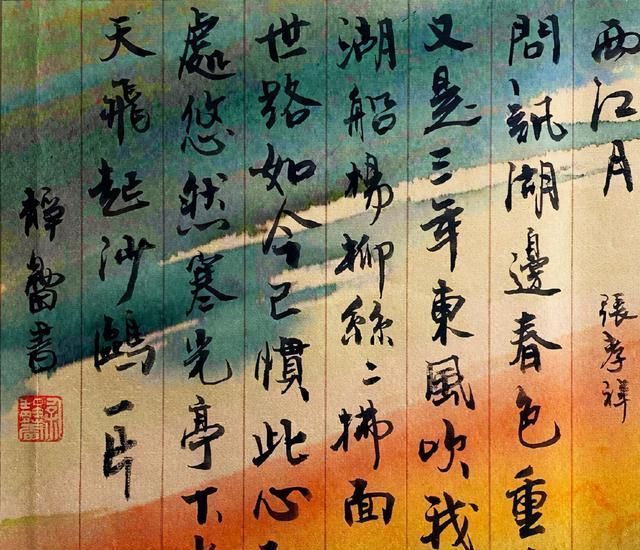 西江月 張孝祥
問訊湖邊春色重
又是三年東風吹我
湖船楊柳絲〻拂面
世路如今已慣此心
處悠然寒光亭下
天飛起沙鷗一片
靜書